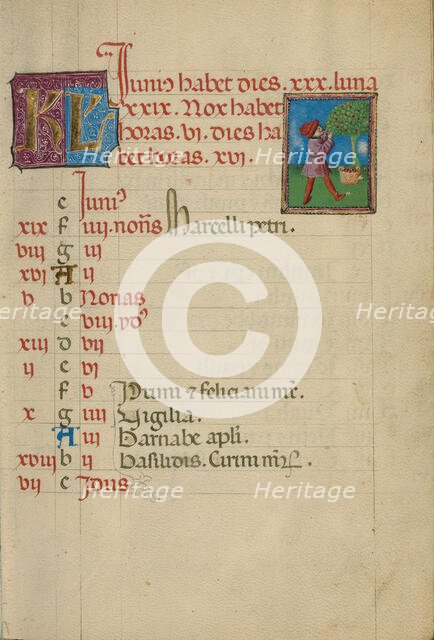 KL Junius habet dies .xxx. luna
xxix. Nox habet
horas .vi. dies ha
bet horas .xvi.
e Junius
xix f iiii. nonas Marcelli petri.
viii g iii
xvi A ii
v b Nonas
c viii. yd9
xiii d vii
ii e
f v Primi ⁊ feliciani mr.
x g iiii Vigilia.
A iii Barnabe apli.
xviii b ii Basilidis. Cirini mr.
vii c Idus
Heritage
Heritage
Heritage
Heritage
Heritage
Heritage
C